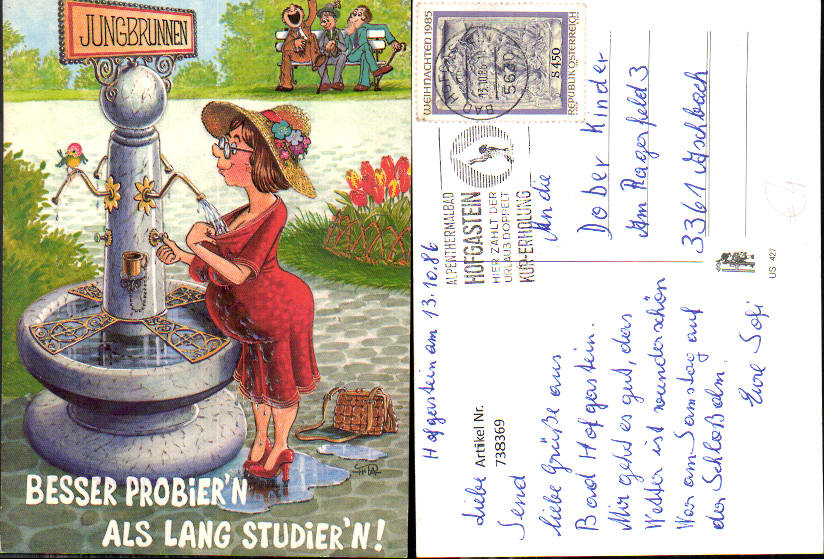 JUNGBRUNNEN
BESSER PROBIER'N
ALS LANG STUDIER'N!
WEIHNACHTEN 1985
S 4.50
REPUBLIK ÖSTERREICH
13.10.86
5630
ALPENTHERMALBAD
HOFGASTEIN
HIER ZÄHLT DER
URLAUB DOPPELT
KUR-ERHOLUNG
An die
Dober Kinder
Am Ragerfeld 3
3361 Aschbach
US 427
Hofgastein am 13.10.86
Artikel Nr.
738369
Liebe
liebe Grüße aus
Bad Hofgastein.
Mir geht es gut, das
Wetter ist wunderschön
War am Samstag auf
der Schloßalm.
Eure Sofi